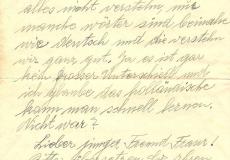 alles nicht verstehn, nur
manche wörter sind beinahe
wie Deutsch und die verstehn
wir ganz gut. Ja es ist gar
kein grosser Unterschied und
ich glaube das holländische
kann man schnell lernen.
Nicht war?
Lieber junger Freund